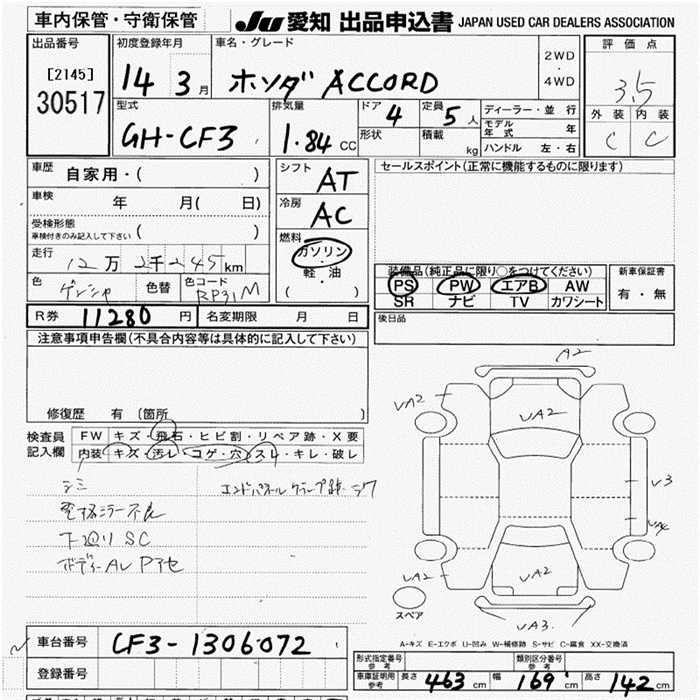 車内保管・守衛保管
JU 愛知 出品申込書 JAPAN USED CAR DEALERS ASSOCIATION
出品番号
[2145]
30517
初度登録年月
14 3月
車名・グレード
ホンダ ACCORD
2WD
・
4WD
評価点
3.5
外装 内装
C C
型式
GH-CF3
排気量
1.84 CC
ドア 4
定員 5人
形状
積載 kg
ディーラー・並行
モデル年式 年
ハンドル 左・右
車歴 自家用・( )
車検 年 月( 日)
受検形態
車検付きのみ記入して下さい ( )
走行 12万2千245km
色 色替 色コード
RP31M
シフト AT
冷房 AC
燃料
ガソリン
・
軽・油
( )
セールスポイント(正常に機能するものに限ります)
装備品(純正品に限り○をつけてください)
PS PW エアB AW
SR ナビ TV カワシート
新車保証書
有・無
R券 11280円 名変期限 月 日
後日品
注意事項申告欄(不具合内容等は具体的に記入して下さい)
修復歴 有(箇所 )
検査員
記入欄
FW キズ・飛石・ヒビ割・リペア跡・X要
内装 キズ・汚レ・コゲ・穴・スレ・キレ・破レ
シミ
電格ミラー不良
下廻りSC
エンドパネルクランプ跡
A2
UA2
UA2
U3
UA2
UA2
UA3
スペア
A-キズ E-エクボ U-凹み W-補修跡 S-サビ C-腐食 XX-交換済
車台番号 CF3-1306072
登録番号
形式指定番号
参考
類別区分番号
参考
車庫証明用
参考
長さ 463cm 幅 169cm 高さ 142cm